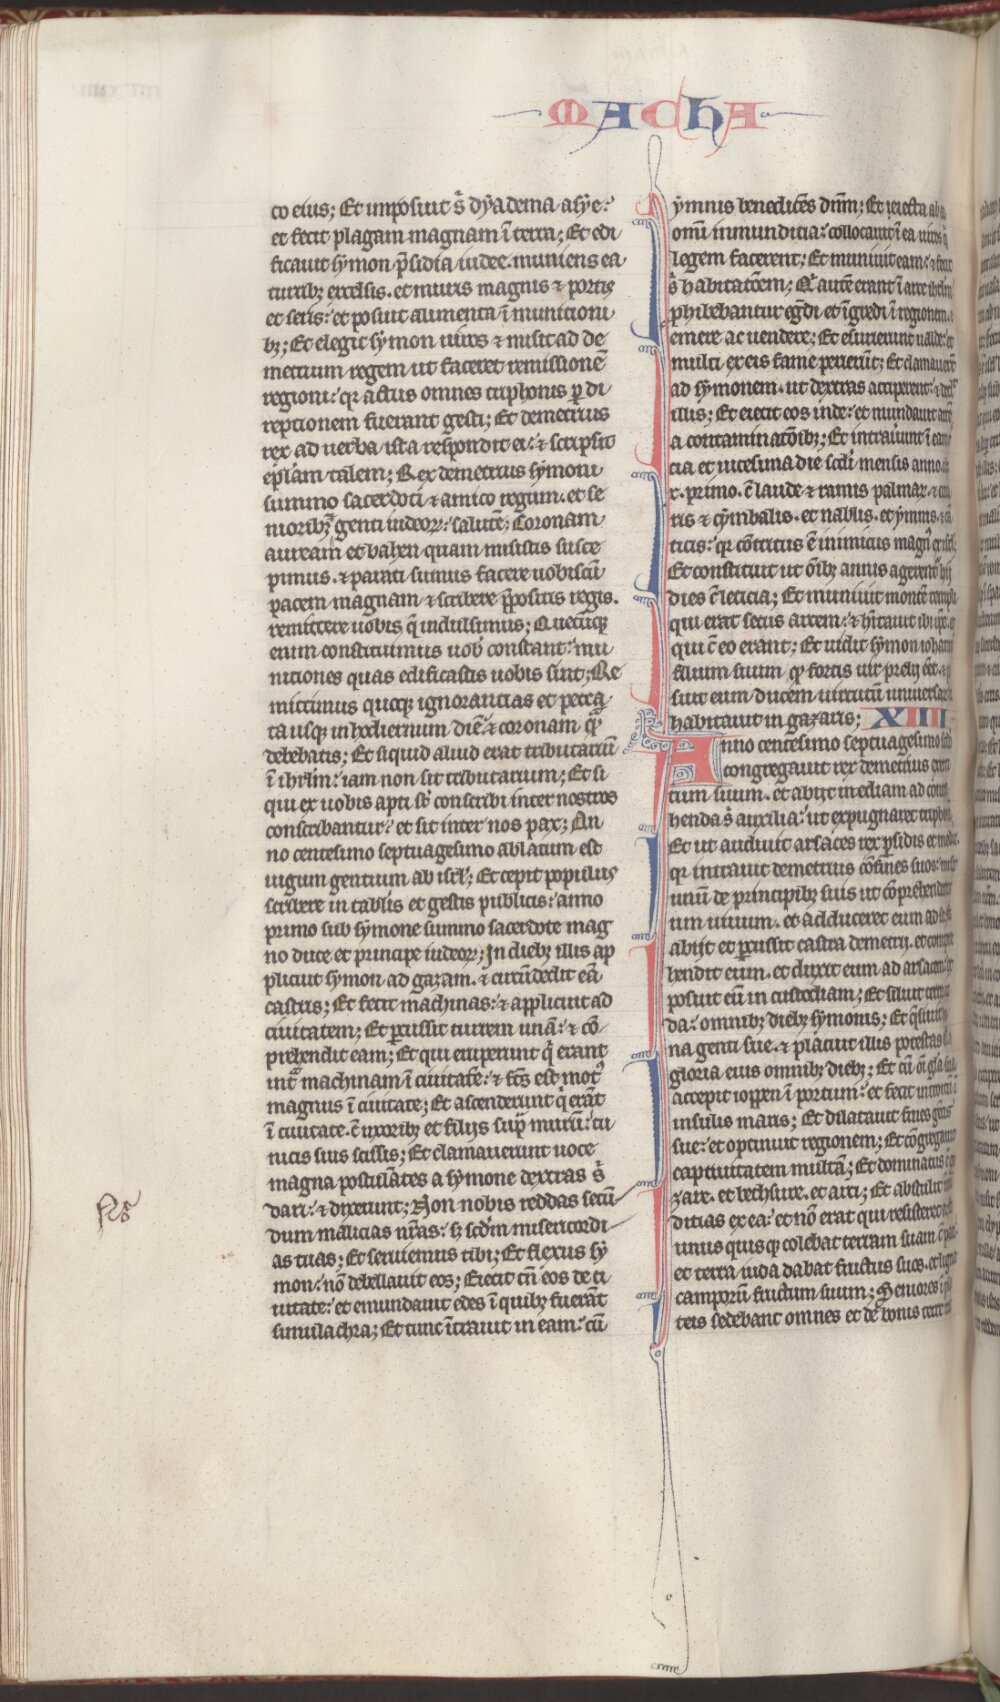 MACHA
co eius; Et imposuit s̄ dyadema asye:
et fecit plagam magnam ī terra; Et edi
ficauit symon p̄sidia iudee. muniens ea
turribꝫ excelsis. et muris magnis ⁊ portis
et seris: et posuit alimenta ī munitioni
bꝫ; Et elegit symon uiros ⁊ misit ad de
metrium regem ut faceret remissionē
regioni: qꝛ actus omnes triphonis ꝑ di
reptionem fuerant gesti; Et demetrius
rex ad uerba ista respondit ei: ⁊ scripsit
ep̄lam talem; Rex demetrius symoni
summo sacerdoti ⁊ amico regum. et se
nioribꝫ ⁊ genti iudeoꝝ: salutē; Coronam
auream et bahen quam misistis susce
pimus. ⁊ parati sumus facere uobiscū
pacem magnam ⁊ scribere p̄positis regis.
remittere uobis q̄ indulsimus; Quecūqꝫ
enim constituimus uob̄ constant: mu
nitiones quas edificastis uobis sint; Re
mittimus quoqꝫ ignorantias et pecca
ta usqꝫ in hodiernum diē ⁊ coronam q̄
debebatis; Et siquid aliud erat tributariū
ī ihrlm: iam non sit tributarium; Et si
qui ex uobis apti st̄ conscribi inter nostros
conscribantur: et sit inter nos pax; An
no centesimo septuagesimo ablatum est
iugum gentium ab isrl; Et cepit populus
scribere in tablis et gestis publicis: anno
primo sub symone summo sacerdote mag
no duce et principe iudeoꝝ; In diebꝫ illis ap
plicuit symon ad gazam. ⁊ circūdedit eā
castris; Et fecit machinas: ⁊ applicuit ad
ciuitatem; Et ꝑcussit turrem unā: ⁊ cō
prehendit eam; Et qui eruperunt q̄ erant
int̄ machinam ī ciuitatē: ⁊ fc̄s est motꝰ
magnus ī ciuitate; Et ascenderunt q̄ erāt
ī ciuitate. c̄ uxoribꝫ et filijs sup̄ murū: tu
nicis suis scissis; Et clamauerunt uoce
magna postulātes a symone dextras s̄
dari: ⁊ dixerunt; Non nobis reddas secū
dum malicias nr̄as: sꝫ scdm misericordi
as tuas; Et seruiemus tibi; Et flexus sy
mon: nō debellauit eos; Eiecit tn̄ eos de ci
uitate: et emundauit edes ī quibꝫ fuerāt
simulachra; Et tunc ītrauit in eam: cū
ymnis benedicēs dnm; Et eiecta ab ea
omī inmunditia: collocauit ī ea uiros q̄
legem facerent; Et muniuit eam: ⁊ fecit
s̄ habitatōem; Qi autē erant ī arce ihrlm
ꝓhibebantur egdi et īgredi ī regionem.
emere ac uendere; Et esurierunt ualde: et
multi ex eis fame perierūt; Et clamauert̄
ad symonem. ut dextras acciperent: ⁊
illis; Et eiecit eos inde: et mundauit arcē
a contaminatōibꝫ; Et intrauiunt ī eam
cia et uicesima die scdi mensis anno
x. primo. c̄ laude ⁊ ramis palmaꝝ. ⁊
ris ⁊ cymbalis. et nablis. et ymnis. ⁊
ticis: qꝛ cōtritus ē inimicus magnꝰ ex isrl;
Et constituit ut oībꝫ annis agerentꝰ hij
dies c̄ leticia; Et muniuit montē templi
qui erat secus arcem: ⁊ hītauit ibi ipse. et
qui c̄ eo erant; Et uidit symon iohannē
filium suum ꝙ fortis uir prelij eēt.
suit eum ducem uirtutū uniuersarū
habitauit in gazaris; XIIII
Anno centesimo septuagesimo scdo
congregauit rex demetrius exer
tum suum. et abijt in ediam ad contra
henda s̄ auxilia: ut expugnaret triphonē
Et ut audiuit arsaces rex ꝑsidis et medie
qꝛ intrauit demetrius cōfines suos: misit
unū de principibꝫ suis ut cōprehenderet
um uiuum. et adduceret eum ad se
abijt et ꝑcussit castra demetrij. et compre
hendit eum. et duxit eum ad arsacem: et
posuit eū in custodiam; Et siluit
da: omnibꝫ diebꝫ symonis; Et q̄siuit
na genti sue. ⁊ placuit illis potestas
gloria eius omnibꝫ diebꝫ; Et cū oī gla sua
accepit ioppen ī portum: et fecit introitū ī
insulis maris; Et dilatauit fines gentis
sue: et optinuit regionem; Et cōgregauit
captiuitatem multā; Et dominatus ē
zare. et bethsure. et arci; Et abstulit
ditias ex ea: et nō erat qui resisteret ei
unus quis qꝫ colebat terram suam c̄ pace
et terra iuda dabat fructus suos. et ligna
camporū fructum suum; Seniores ī pla
teis sedebant omnes et de bonis terre